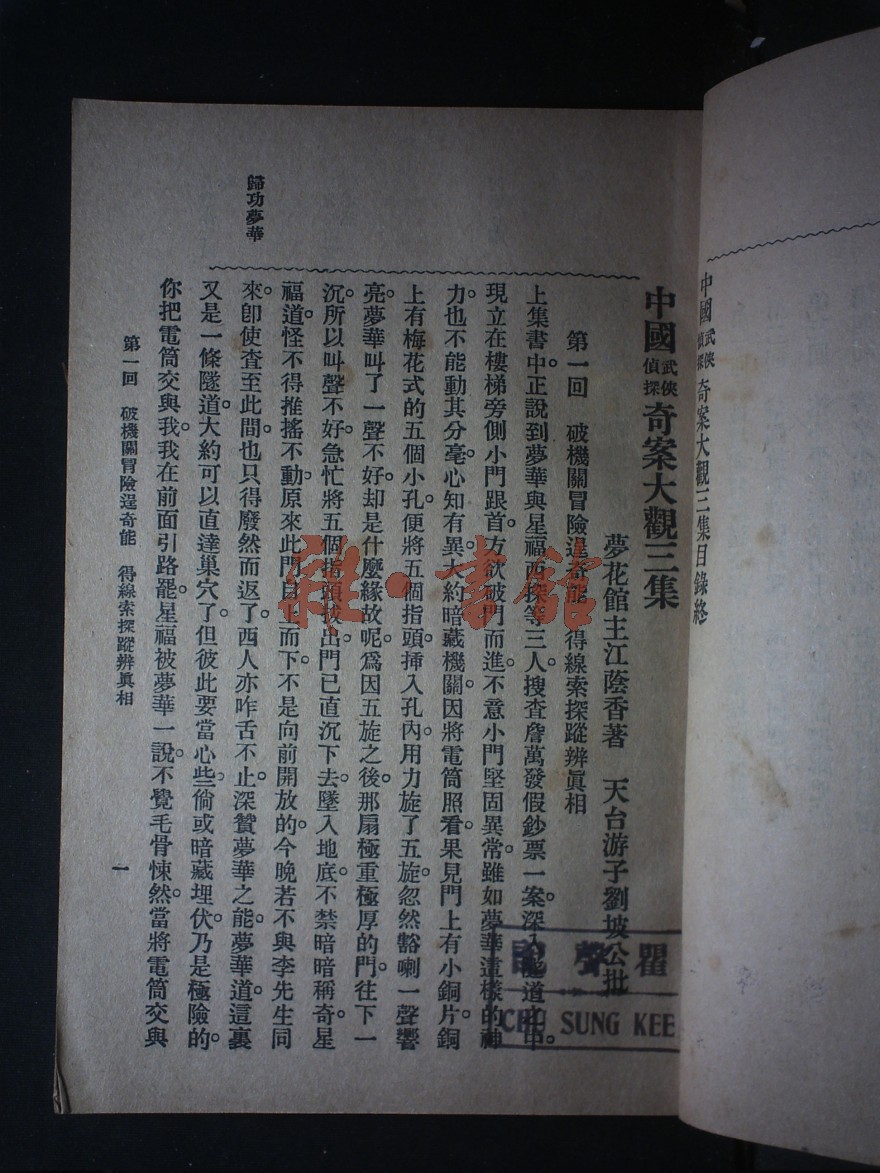 中國武俠偵探奇案大觀三集目錄終
中國武俠偵探奇案大觀三集
夢花館主江蔭香著　天台游子劉坡公批
第一回　破機關冒險逞奇能　得線索探蹤辨眞相
上集書中。正說到夢華與星福西探等三人。搜查詹萬發假鈔票一案。深入隧道之中。
現立在樓梯旁側小門跟首。方欲破門而進。不意小門堅固異常。雖如夢華這樣的神
力。也不能動其分毫。心知有異。大約暗藏機關。因將電筒照看。果見門上有小銅片。銅
上有梅花式的五個小孔。便將五個指頭揷入孔內。用力旋了五旋。忽然豁喇一聲響
亮。夢華叫了一聲不好。却是什麼緣故呢。爲因五旋之後。那扇極重極厚的門。往下一
沉。所以叫聲不好。急忙將五個指頭拔出。門已直沉下去。墜入地底。不禁暗暗稱奇。星
福道。怪不得推搖不動。原來此門自上而下。不是向前開放的。今晚若不與李先生同
來。卽使查至此間。也只得廢然而返了。西人亦咋舌不止。深贊夢華之能。夢華道。這裏
又是一條隧道。大約可以直達巢穴了。但彼此要當心些。倘或暗藏埋伏。乃是極險的。
你把電筒交與我。我在前面引路罷。星福被夢華一說。不覺毛骨悚然。當將電筒交與
歸功夢華
第一回　破機關冒險逞奇能　得線索探蹤辨眞相
一
瞿聲
SUNG KEE
雜·書館